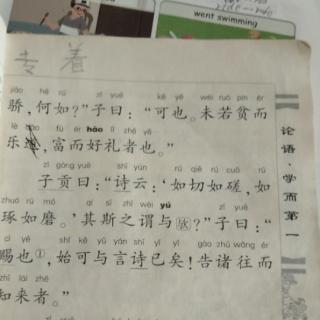 went swimming
专 着
jiāo hé rú zǐ yuē kě yě wèi ruò pín ér
骄,何如?”子曰:“可也。未若贫而
lè fù ér hào lǐ zhě yě
乐道,富而好礼者也。”
zǐ gòng yuē shī yún rú qiē rú cuō rú
子贡曰:“诗云:‘如切如磋,如
zhuó rú mó qí sī zhī wèi yú zǐ yuē
琢如磨。’其斯之谓与欤?”子曰:“
cì yě shǐ kě yǔ yán shī yǐ yǐ gào zhū wǎng ér
赐也①,始可与言诗已矣!告诸往而
zhī lái zhě
知来者。”
zǐ yuē
论语·学而第一